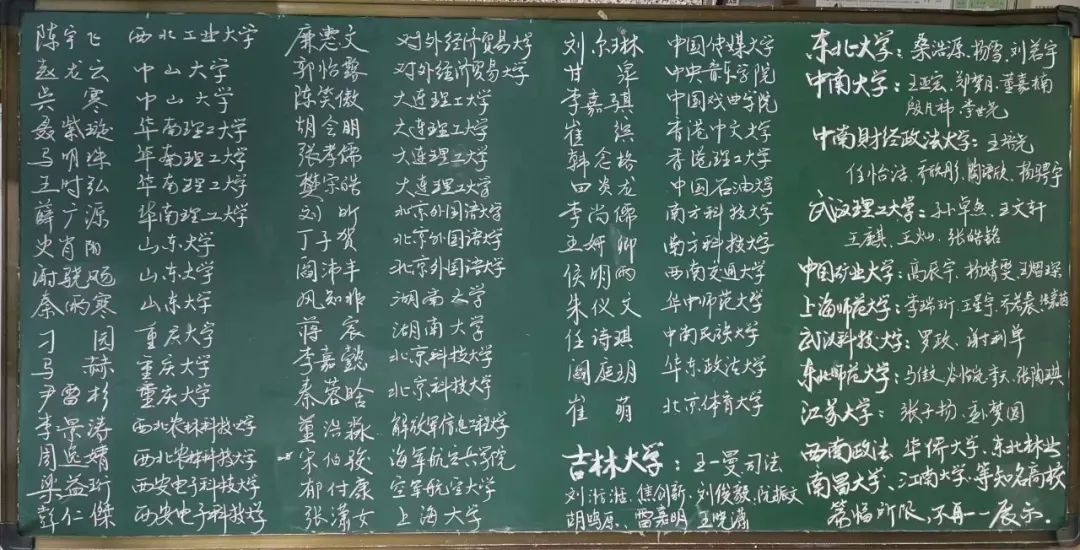 陈宇飞 西北工业大学
赵龙云 中山大学
吴寒 中山大学
聂紫璇 华南理工大学
马明珠 华南理工大学
王时弘 华南理工大学
薛广源 华南理工大学
史肖阳 山东大学
谢骁飏 山东大学
秦雨寒 山东大学
刁园 重庆大学
马赫 重庆大学
尹雷杉 重庆大学
李景涛 西北农林科技大学
周逸婧 西北农林科技大学
梁益珩 西安电子科技大学
彭仁傑 西安电子科技大学
廉惠文 对外经济贸易大学
郭怡露 对外经济贸易大学
陈笑傲 大连理工大学
胡令明 大连理工大学
张孝儒 大连理工大学
樊宗皓 大连理工大学
刘昕 北京外国语大学
丁子贺 北京外国语大学
阎沛丰 北京外国语大学
风知非 湖南大学
蒋宸 湖南大学
李嘉懿 北京科技大学
秦蓉晗 北京科技大学
董浩淼 解放军信息工程大学
宋伯骏 海军航空兵学院
郁付康 空军航空大学
张潇女 上海大学
刘尔琳 中国传媒大学
甘霖 中央音乐学院
李嘉骐 中国戏曲学院
崔缤 香港中文大学
韩念格 香港理工大学
四炎龙 中国石油大学
李尚儒 南方科技大学
王妍卿 南方科技大学
侯明西 西南交通大学
朱仪文 华中师范大学
任诗琪 中南民族大学
阎庭玥 华东政法大学
崔萌 北京体育大学
吉林大学：王一曼司法
刘浙淮、焦创新、刘俊毅、阮振文
胡鸣原、雷嘉明、王晓潇
东北大学：桑浩源、杨雪、刘若宇
中南大学：王亚宏、郑梦月、董嘉楠
殷凡祎、李世光
中南财经政法大学：王增光
任怡洁、齐欣彤、陶语欣、杨骋宇
武汉理工大学：孙卓然、王文轩
王赓祺、王灿、张皓铭
中国矿业大学：高辰宇、杨婧雯、王熠琛
上海师范大学：李瑞珩、王星宇、齐若晨、侯嘉茵
武汉科技大学：罗政、谢利单
东北师范大学：马傲、谷怡宛、李天、张陶琪
江苏大学：张子扬、彭梦圆
西南政法、华侨大学、东北林业
南昌大学、江南大学、等知名高校
篇幅所限，不再一一展示。